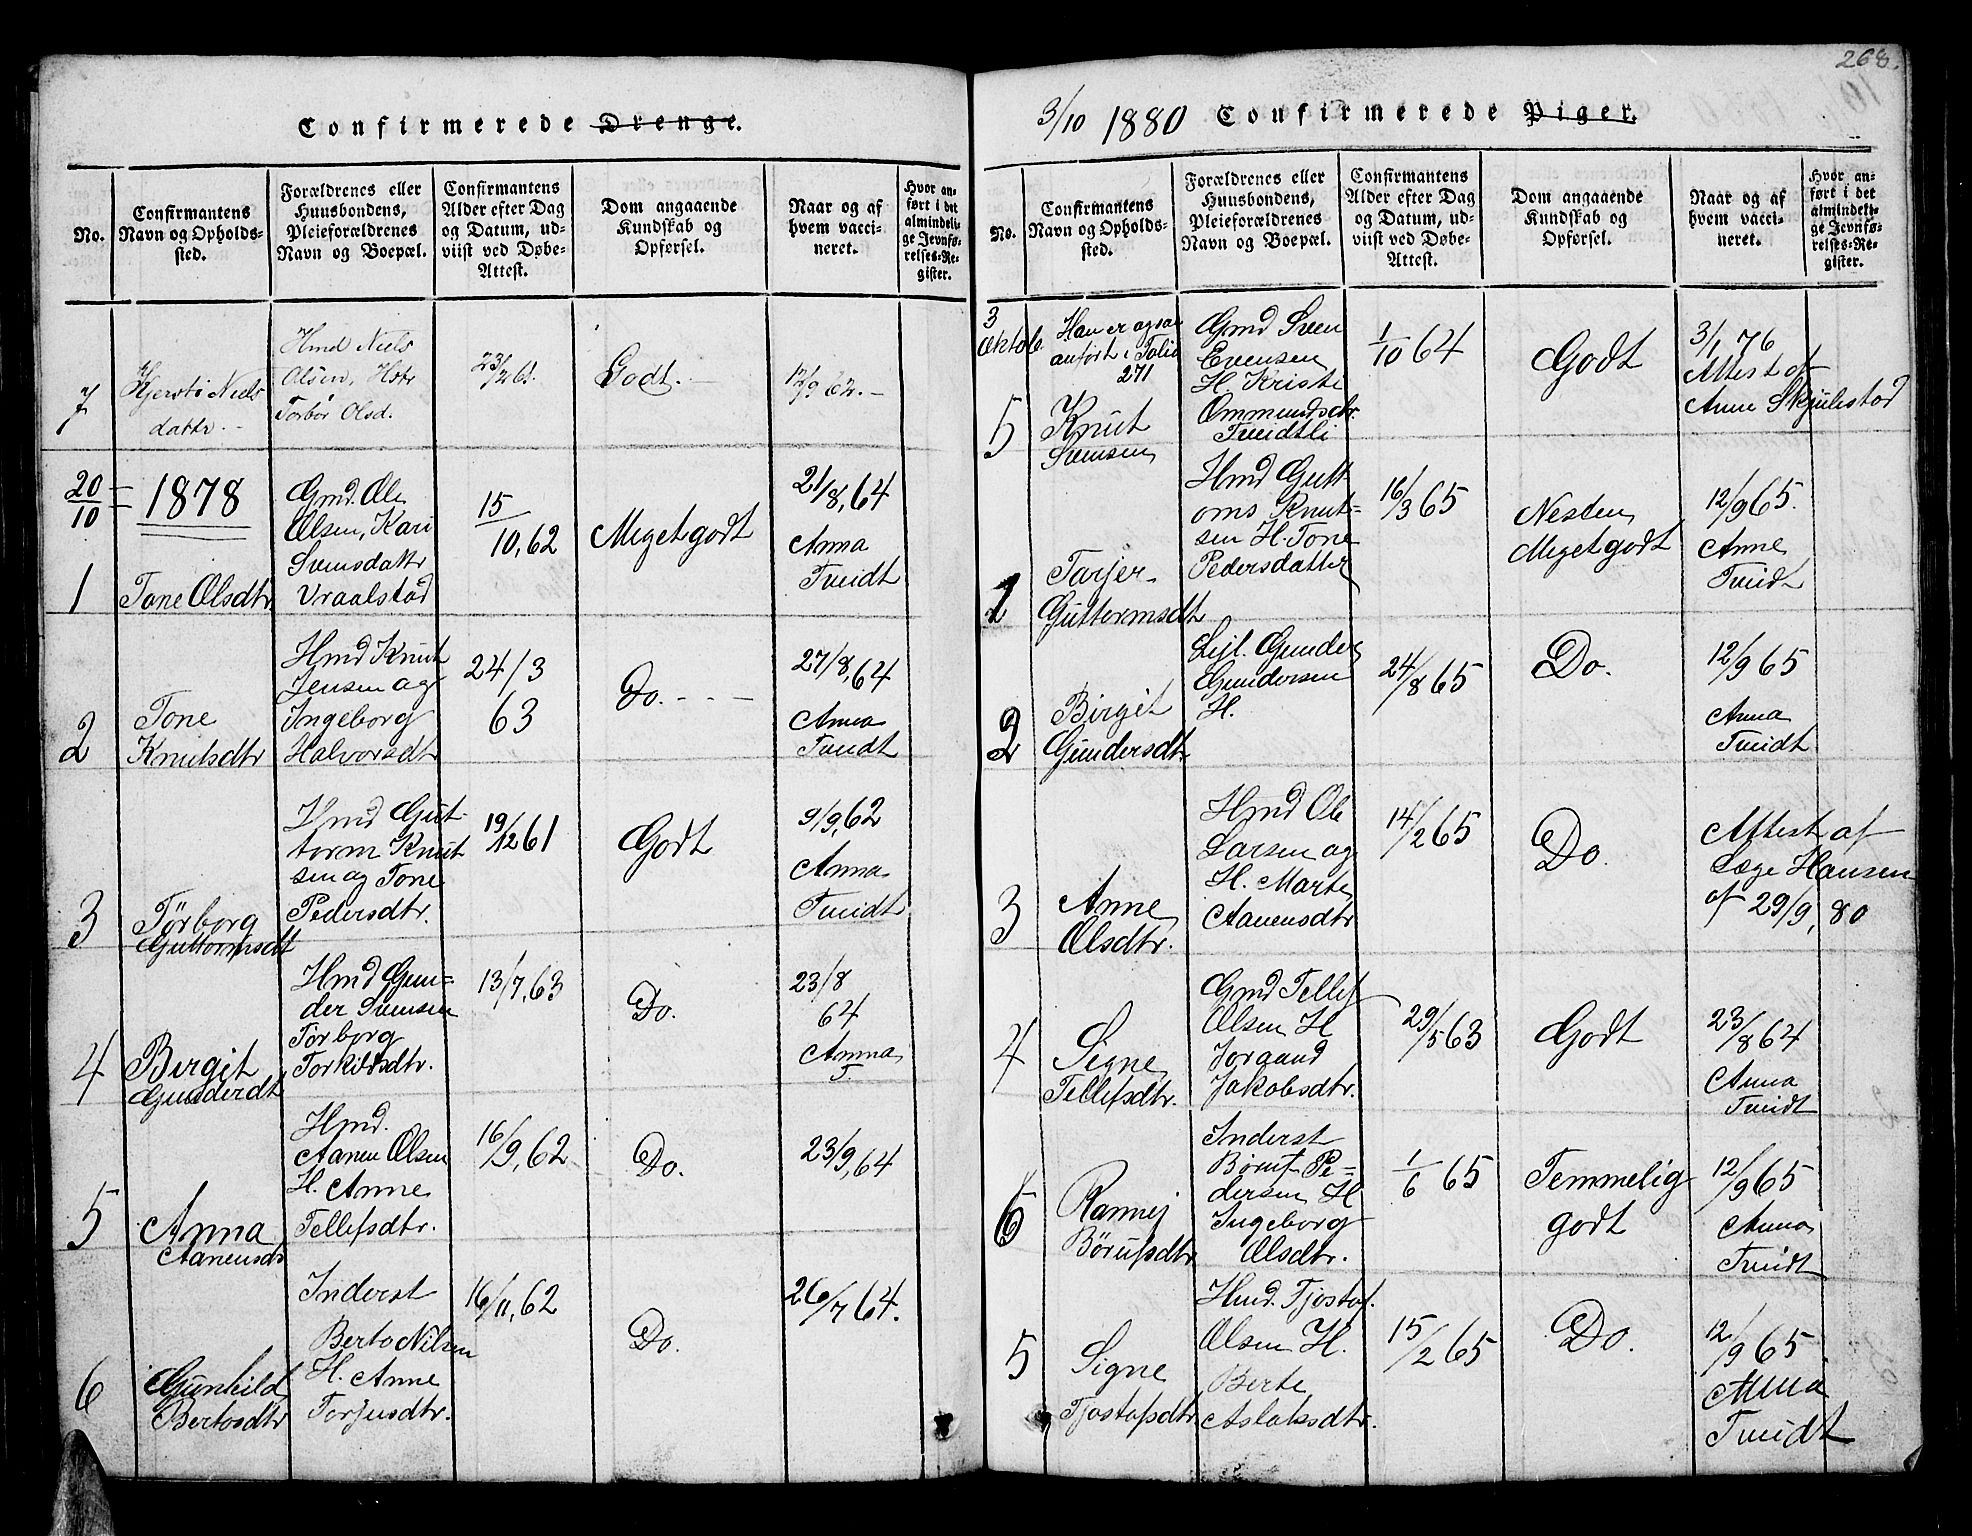 268.
Confirmerede Drenge.
No.
Confirmantens
Navn og Opholds-
sted.
Forældrenes eller
Huusbondens,
Pleieforældrenes
Navn og Boepæl.
Confirmantens
Alder efter Dag
og Datum, ud-
viist ved Døbe-
Attest.
Dom angaaende
Kundskab og
Opførsel.
Naar og af
hvem vacci-
neret.
Hvor an-
ført i det
almindeli-
ge Jevnfø-
relses-Re-
gister.
7
Kjersti Niels
dattr.
Hmd Niels
Olsen, Hstr
Torbør Olsd.
23/2 61.
Godt.
12/9 62.
20/10
1878
1
Tone Olsdtr.
Gmd. Ole
Olsen, Kari
Svensdattr
Vraalstad
15/10, 62
Meget godt
21/8, 64
Anna
Tveidt
2
Tone
Knutsdtr
Hmd Knut
Jensen og
Ingeborg
Halvorsdtr
24/3
63
Do.
27/8, 64
Anna
Tveidt
3
Tørborg
Guttormsdt
Hmd Gut-
torm Knut
sen og Tone
Pedersdtr.
19/12 61
Godt
9/9, 62
Anna
Tveidt
4
Birgit
Gunderdt
Hmd Gun-
der Svensen
Torborg
Torkildsdtr.
13/7, 63
Do.
23/8
64
Anna
T.
5
Anna
Aanensdt
Hmd.
Aanen Olsen
H. Anne
Tellefsdtr.
16/9, 62
Do.
23/9, 64
6
Gunhild
Bertosdtr
Inderst
Berto Nilsen
H. Anne
Torjusdtr.
16/11, 62
Do.
26/7 64.
3/10 1880 Confirmerede Piger.
No.
Confirmantens
Navn og Opholds-
sted.
Forældrenes eller
Huusbondens,
Pleieforældrenes
Navn og Boepæl.
Confirmantens
Alder efter Dag
og Datum, ud-
viist ved Døbe-
Attest.
Dom angaaende
Kundskab og
Opførsel.
Naar og af
hvem vacci-
neret.
Hvor an-
ført i det
almindeli-
ge Jevnfø-
relses-Re-
gister.
3
Oktob.
5
Han er ogsaa
anført i Folio
271
Knut
Svensen
Gmd Sven
Evensen
H. Kristi
Ommundsdtr.
Tveidtli
1/10 64
Godt
3/1 76
Attest af
Anne Skjulestad
1
Tarjer
Guttormsdt
Hmd Gutt-
oms Knut-
sen H. Tone
Pedersdatter
16/3 65
Nesten
Meget godt
12/9 65.
Anne
Tveidt
2
Birgit
Gundersdt.
Lejl. Gunder
Gundersen
H.
24/8 65
Do.
12/9 65
Anna
Tveidt
3
Anne
Olsdtr.
Hmd Ole
Larsen og
H. Marte
Aanensdtr
14/2 65
Do.
Attest af
Læge Hansen
af 29/9, 80
4
Signe
Tellefsdtr.
Gmd Tellef
Olsen H
Jorgand
Jakobsdtr.
29/5 63
Godt
23/8 64
Anna
Tveidt
6
Rannej
Børufsdtr
Inderst
Børuf Pe-
dersen H
Ingeborg
Olsdtr.
1/6 65
Temmelig
godt
12/9 65
Anna
Tveidt
5
Signe
Tjostofsdtr
Hmd. Tjostof
Olsen H.
Berte
Aslaksdtr.
15/2 65
Do.
12/9 65
Anna
Tveidt